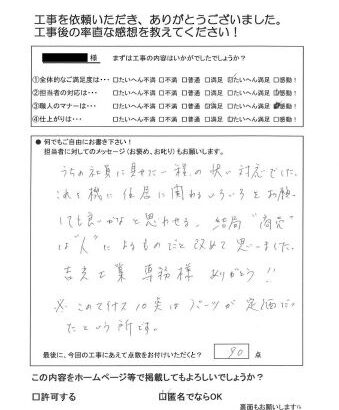 工事を依頼いただき、ありがとうございました。
工事後の率直な感想を教えてください！
様 まずは工事の内容はいかがでしたでしょうか？
①全体的なご満足度は… □たいへん不満 □不満 □普通 □満足 ☑たいへん満足 □感動！
②担当者の対応は… □たいへん不満 □不満 □普通 □満足 □たいへん満足 ☑感動！
③職人のマナーは… □たいへん不満 □不満 □普通 ☑満足 □たいへん満足 ☑感動！
④仕上がりは… □たいへん不満 □不満 □普通 □満足 ☑たいへん満足 □感動！
● 何でもご自由にお書き下さい！
担当者に対してのメッセージ（お褒め、お叱り）もお願いします。
うちの社員に見せたい様の快い対応でした。
これを機に住居に関わるいろいろをお願い
しても良いかなと思わせる。結局"商売"
は"人"によるものだと改めて思いました。
専務様 ありがとう!!
※ このマイナス10点はパーツが定価だっ
たという所です。
最後に、今回の工事にあえて点数をお付けいただくと？ 90 点
この内容をホームページ等で掲載してもよろしいでしょうか？
□許可する ☑匿名でならOK
裏面もお願いします